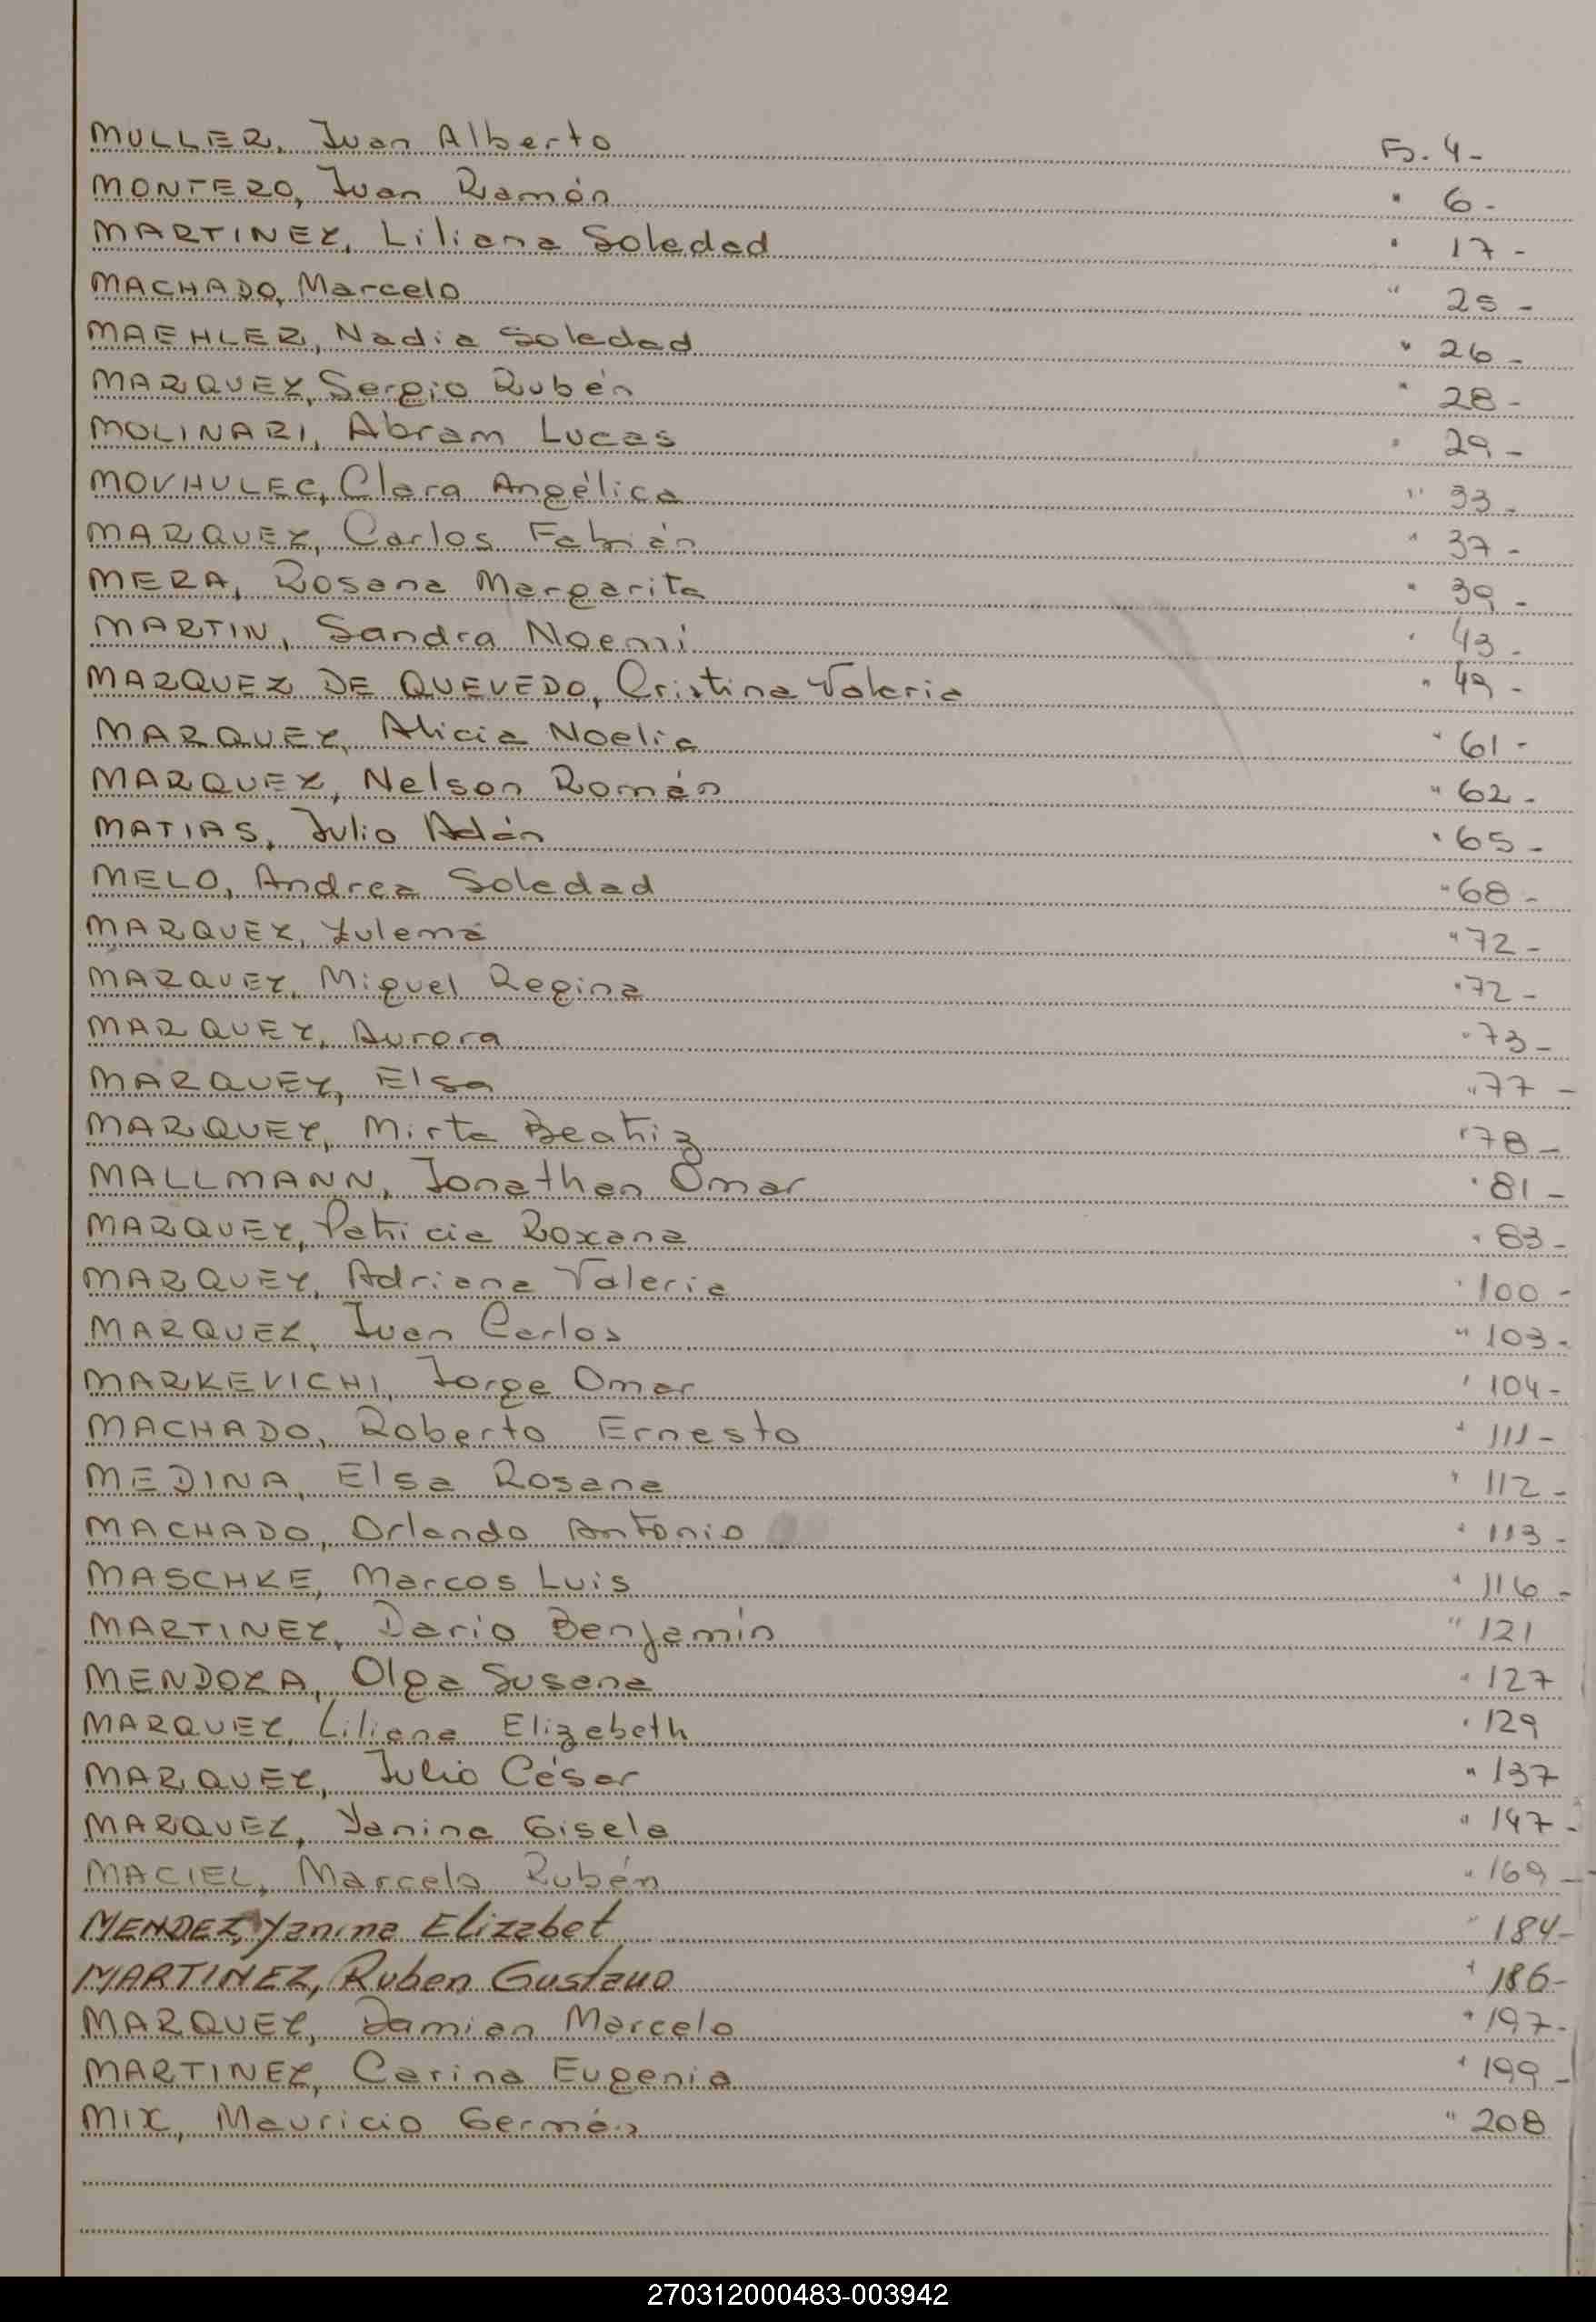 MULLER, Juan Alberto Fs. 4-
MONTERO, Juan Ramón " 6-
MARTINEZ, Liliana Soledad " 17-
MACHADO, Marcelo " 25-
MAEHLER, Nadia Soledad " 26-
MARQUEZ, Sergio Rubén " 28-
MOLINARI, Abram Lucas " 29-
MOVHULEC, Clara Angélica " 33-
MARQUEZ, Carlos Fabián " 37-
MERA, Rosana Margarita " 39-
MARTIN, Sandra Noemí " 43-
MARQUEZ DE QUEVEDO, Cristina Valeria " 49-
MARQUEZ, Alicia Noelia " 61-
MARQUEZ, Nelson Román " 62-
MATIAS, Julio Adán " 65-
MELO, Andrea Soledad " 68-
MARQUEZ, Zulema " 72-
MARQUEZ, Miguel Regina " 72-
MARQUEZ, Aurora " 73-
MARQUEZ, Elsa " 77-
MARQUEZ, Mirta Beatriz " 78-
MALLMANN, Jonathan Omar " 81-
MARQUEZ, Patricia Roxana " 83-
MARQUEZ, Adriana Valeria " 100-
MARQUEZ, Juan Carlos " 103-
MARKEVICHI, Jorge Omar " 104-
MACHADO, Roberto Ernesto " 111-
MEDINA, Elsa Rosana " 112-
MACHADO, Orlando Antonio " 113-
MASCHKE, Marcos Luis " 116-
MARTINEZ, Dario Benjamín " 121
MENDOZA, Olga Susana " 127
MARQUEZ, Liliana Elizabeth " 129
MARQUEZ, Julio César " 137
MARQUEZ, Yanina Gisela " 147-
MACIEL, Marcelo Rubén " 169-
MENDEZ, Yanina Elizabet " 184-
MARTINEZ, Ruben Gustavo " 186-
MARQUEZ, Damian Marcelo " 197-
MARTINEZ, Carina Eugenia " 199-
MIX, Mauricio Germán " 208
270312000483-003942